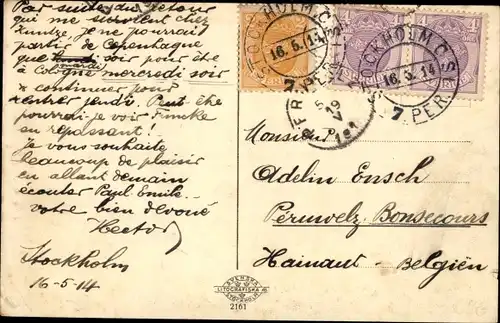 Par suite du retour
qui me survient chez
Kuntze. Je ne pourrai
partir de Copenhague
que lundi soir pour être
à Cologne mercredi soir
& continuer pour
rentrer jeudi. Peut être
pourrai-je voir Funcke
en repassant!
Je vous souhaite
beaucoup de plaisir
en allant demain
écouter Paul Emile.
votre bien dévoué
Hector
Stockholm
16-5-14
STOCKHOLM.C.
16.5.14
7.
STOCKHOLM.C.S
16.5.14
7 PER
Monsieur
Adelin Ensch
Peruwelz Bonsecours
Hainaut - Belgiën
LITOGRAFISKA
2161